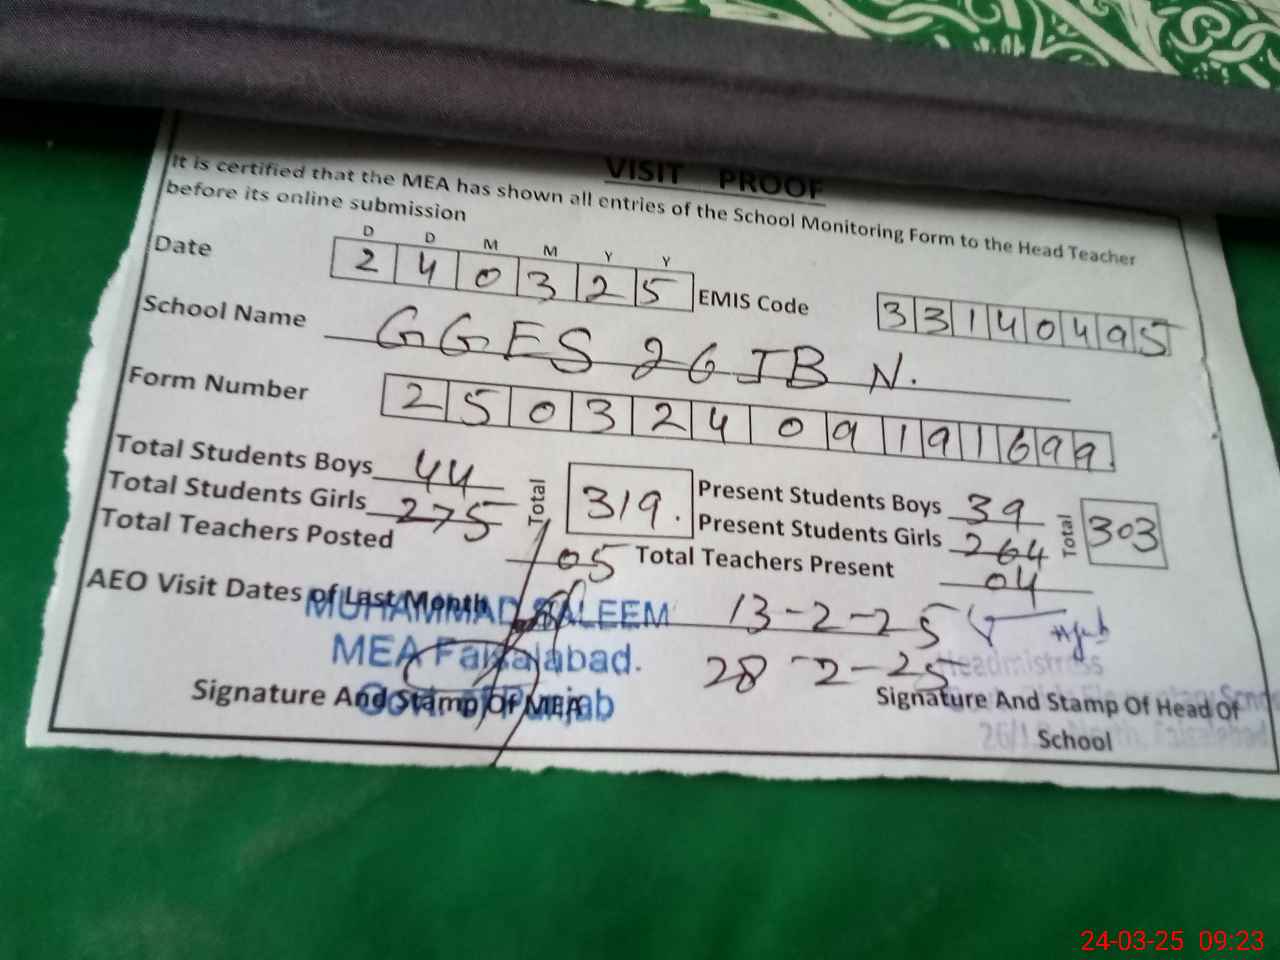 VISIT PROOF
It is certified that the MEA has shown all entries of the School Monitoring Form to the Head Teacher
before its online submission
D D M M Y Y
Date 2 4 0 3 2 5 EMIS Code 3 3 1 4 0 4 9 5
School Name GGES 26 JB N.
Form Number 2 5 0 3 2 4 0 9 1 9 1 6 9 9
Total Students Boys 44 Total 319. Present Students Boys 39 Total 303
Total Students Girls 275 Present Students Girls 264
Total Teachers Posted 05 Total Teachers Present 04
AEO Visit Dates of Last Month 13-2-25
28-2-25
MUHAMMAD SALEEM
MEA Faisalabad.
Govt. of Punjab
Headmistress
Signature And Stamp Of MEA Signature And Stamp Of Head Of
School
24-03-25 09:23